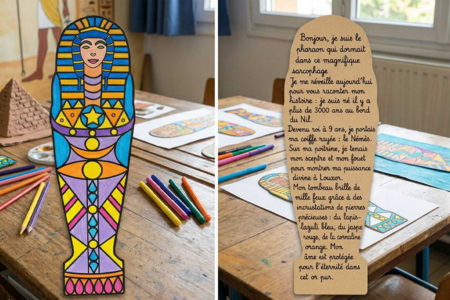 Bonjour, je suis le
pharaon qui dormait
dans ce magnifique
sarcophage.
Je me réveille aujourd'hui
pour vous raconter mon
histoire : je suis né il y a
plus de 3000 ans au bord
du Nil.
Devenu roi à 9 ans, je portais
ma coiffe rayée : le Némès.
Sur ma poitrine, je tenais
mon sceptre et mon fouet
pour montrer ma puissance
divine à Louxor.
Mon tombeau brille de
mille feux grâce à des
incrustations de pierres
précieuses : du lapis-
lazuli bleu, du jaspe
rouge, de la cornaline
orange. Mon
âme est protégée
pour l'éternité dans
cet or pur.